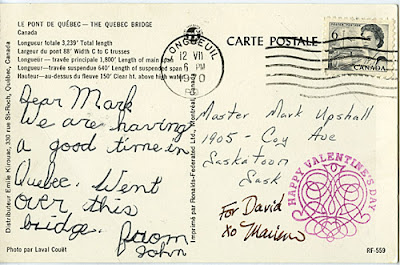 LE PONT DE QUÉBEC — THE QUEBEC BRIDGE
Canada
Longueur totale 3,239' Total length
Largeur du pont 88' Width C to C trusses
Longueur — travée principale 1,800' Length of main span
Longueur — travée suspendue 640' Length of suspended span
Hauteur—au-dessus du fleuve 150' Clear ht. above high water
Dear Mark
We are having
a good time in
Quebec. Went
over this
bridge.
from
John
Photo par Laval Couët
Distributeur Emile Kirouac, 330 rue St-Roch, Québec, Canada
Imprimé par Ronalds-Federated Ltd., Montréal, Canada
LONGUEUIL
12 VII
6 PM
1970
CARTE POSTALE
6
CANADA
Master Mark Upshall
1905 - Coy Ave
Saskatoon
Sask
HAPPY VALENTINE'S DAY
For David
xo
RF-559